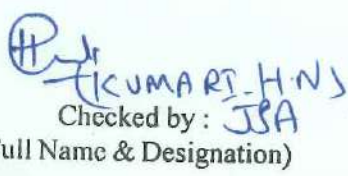 (KUMARI.H.N)
Checked by : JSA
Full Name & Designation)